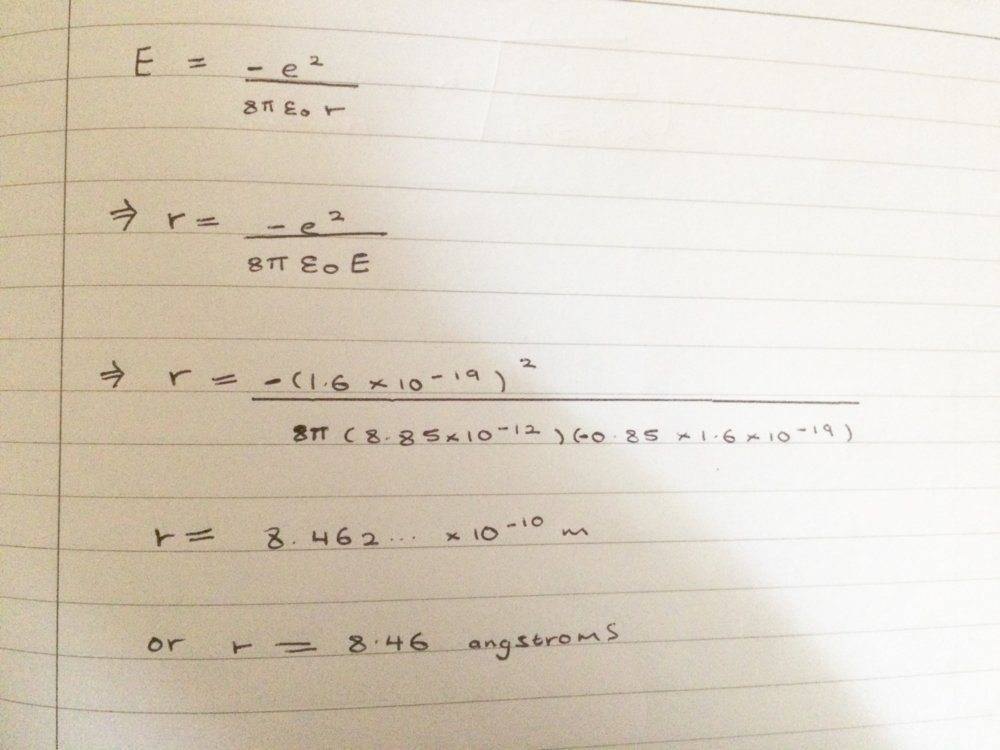 E = -e²
8π ε₀ r
⇒ r = -e²
8π ε₀ E
⇒ r = -(1.6 × 10⁻¹⁹)²
8π (8.85×10⁻¹²)(-0.85 × 1.6 × 10⁻¹⁹)
r = 8.462... × 10⁻¹⁰ m
or r = 8.46 angstroms